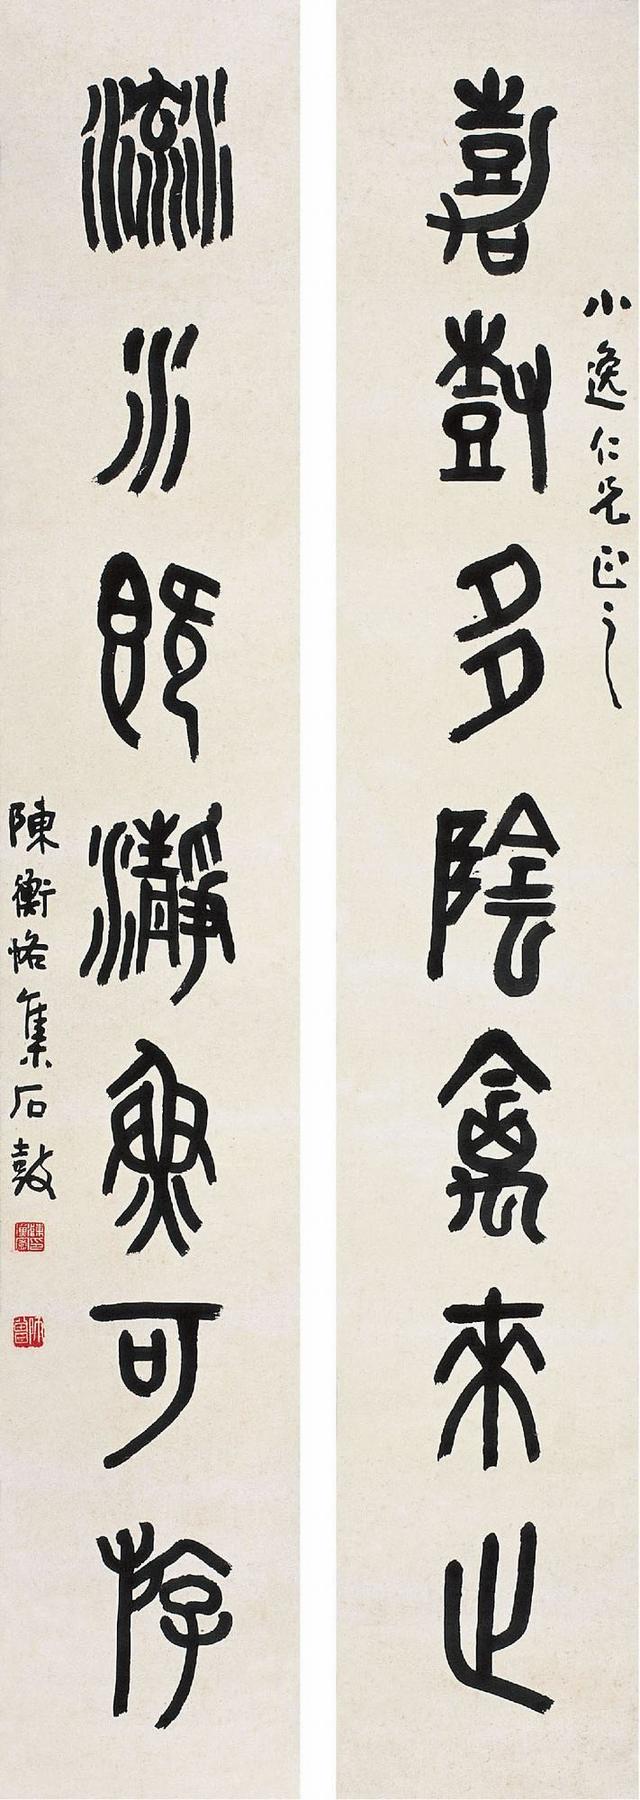 小逸仁兄正之
嘉樹多陰禽來止
流水既瀞魚可游
陳衡恪集石鼓
師曾